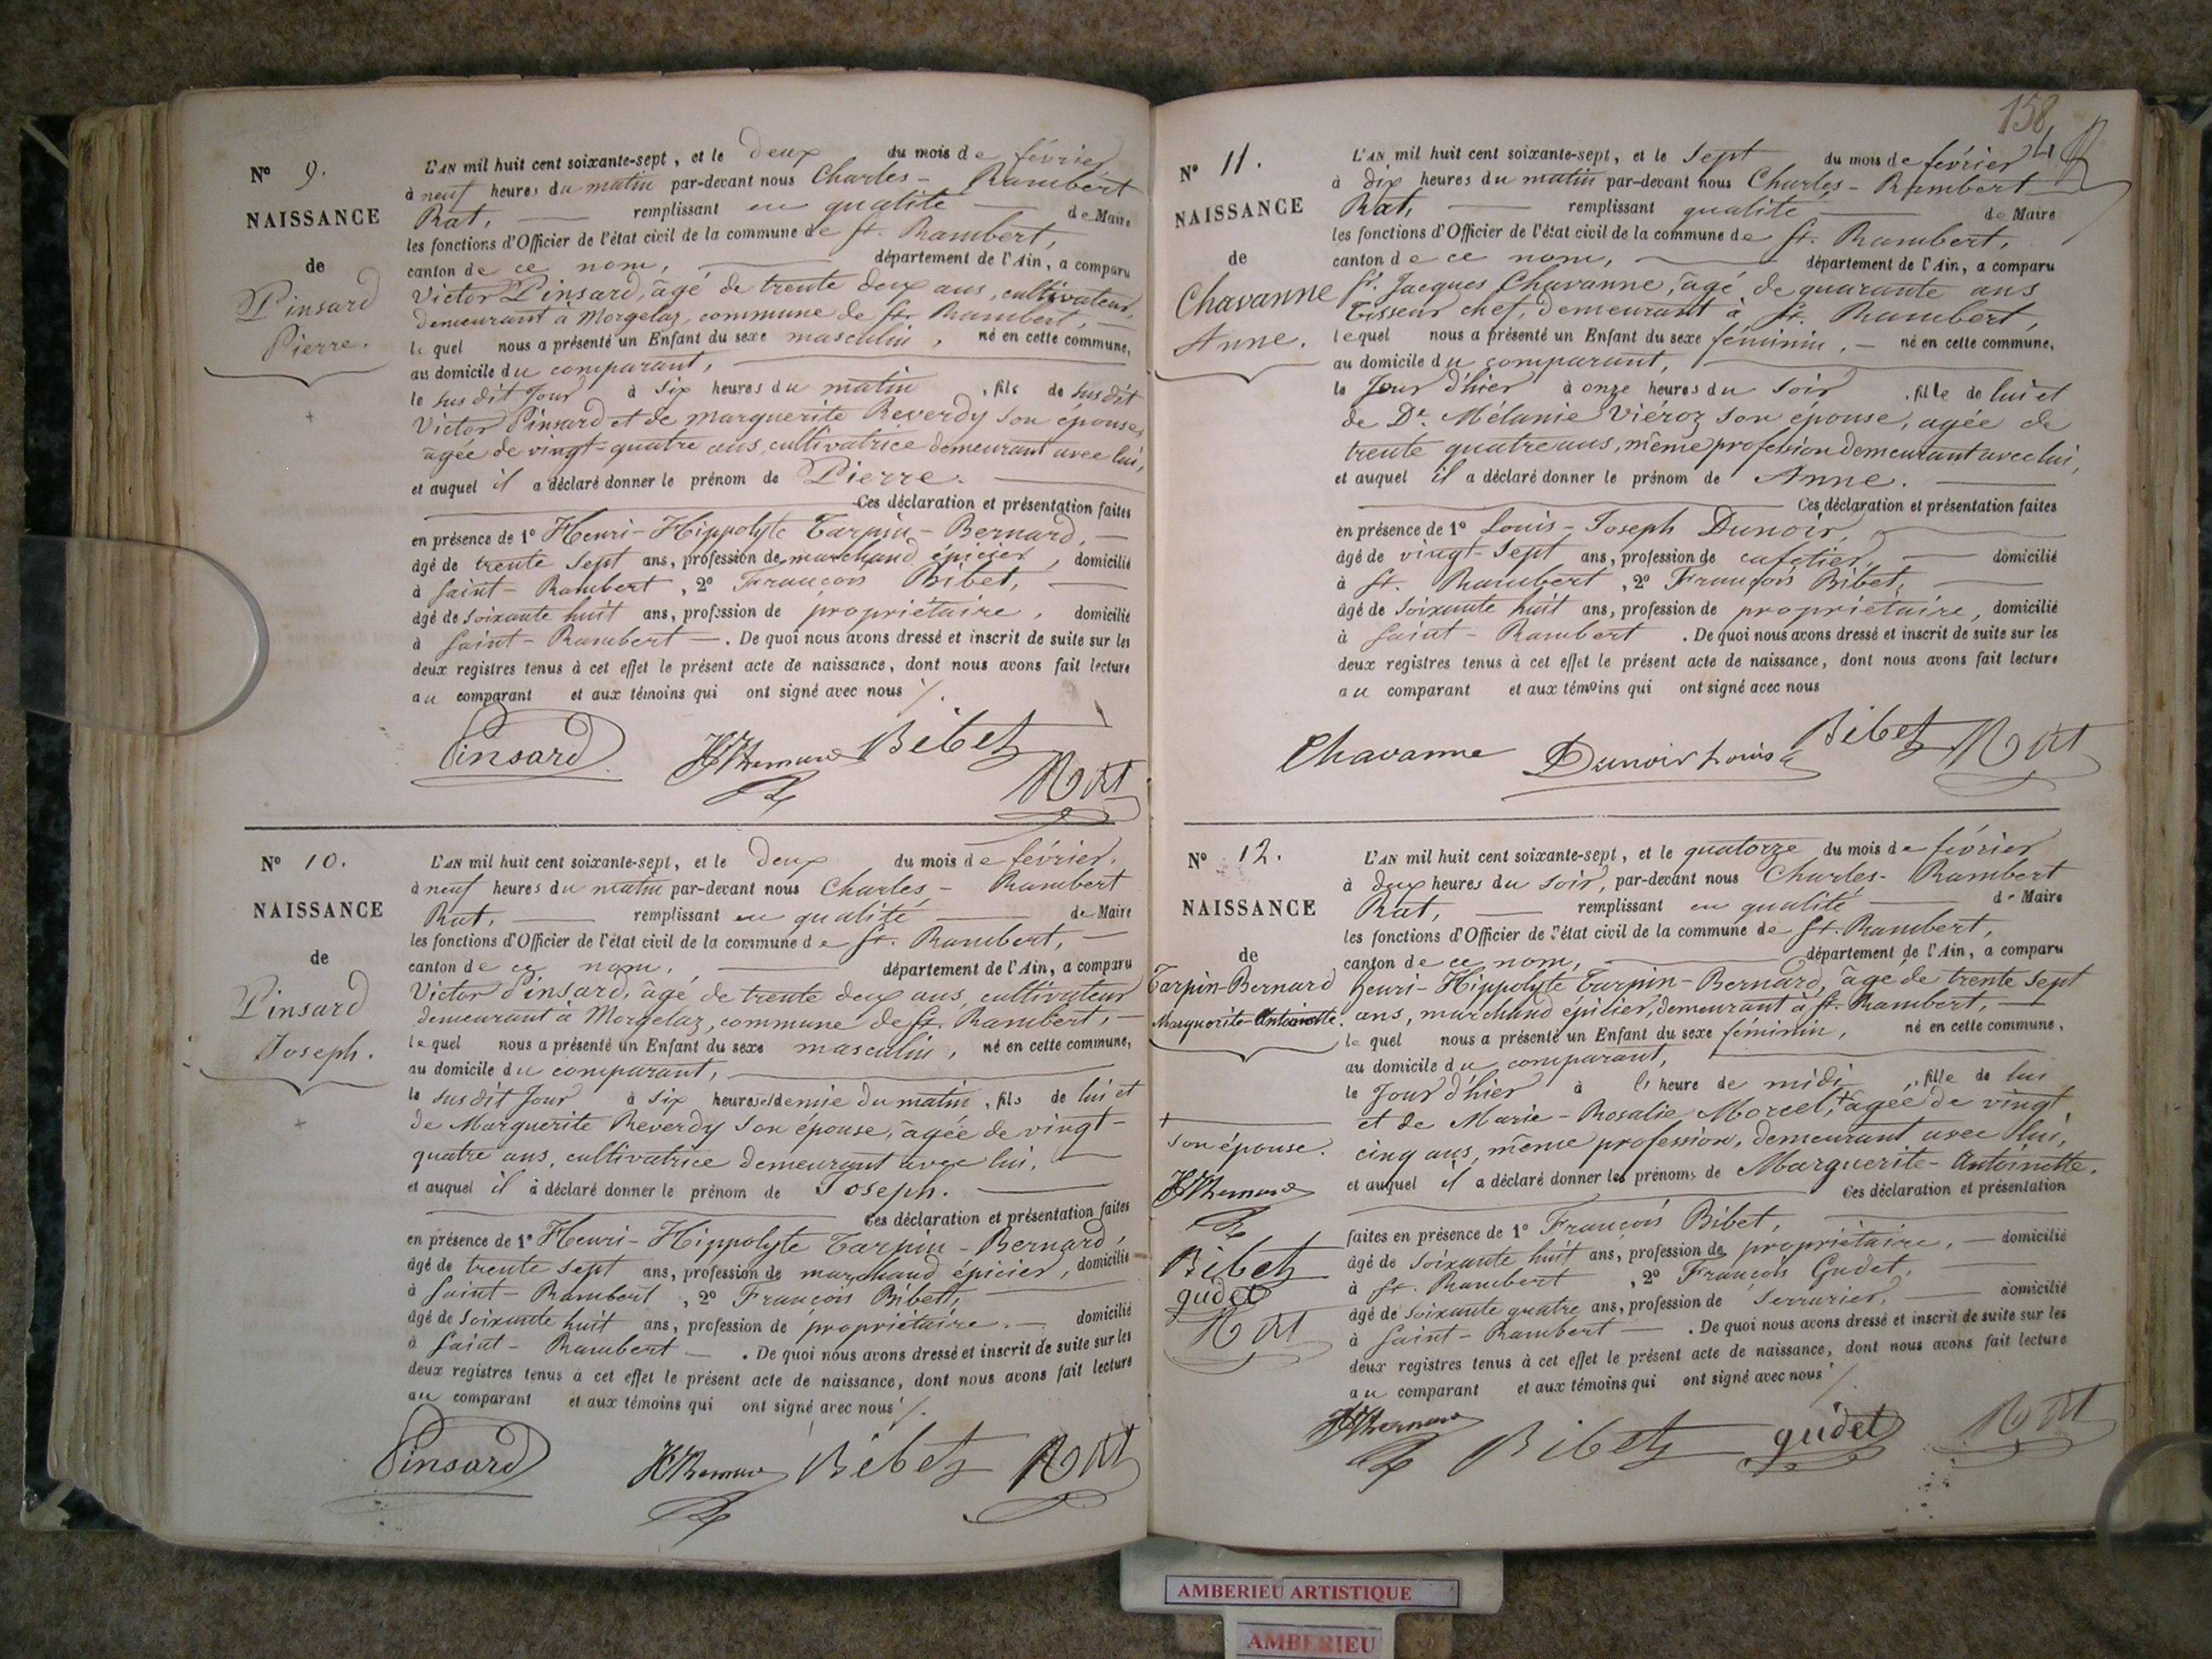 N° 9.
NAISSANCE
de
Pinsard
Pierre.
L'AN mil huit cent soixante-sept, et le deux du mois de février
à neuf heures du matin par-devant nous Charles-Rambert
Rat, remplissant en qualité de Maire
les fonctions d'Officier de l'état civil de la commune de St. Rambert,
canton de ce nom, département de l'Ain, a comparu
Victor Pinsard, âgé de trente deux ans, cultivateur,
demeurant à Morgelaz, commune de St. Rambert,
lequel nous a présenté un Enfant du sexe masculin, né en cette commune,
au domicile du comparant,
le susdit jour à six heures du matin, fils de susdit
Victor Pinsard et de Marguerite Reverdy son épouse,
âgée de vingt-quatre ans, cultivatrice demeurant avec lui,
et auquel il a déclaré donner le prénom de Pierre.
Ces déclaration et présentation faites
en présence de 1° Henri-Hippolyte Tarpin-Bernard,
âgé de trente sept ans, profession de marchand épicier, domicilié
à Saint-Rambert, 2° François Bibet,
âgé de soixante huit ans, profession de propriétaire, domicilié
à Saint-Rambert. De quoi nous avons dressé et inscrit de suite sur les
deux registres tenus à cet effet le présent acte de naissance, dont nous avons fait lecture
au comparant et aux témoins qui ont signé avec nous
Pinsard Bibet Rat
N° 10.
NAISSANCE
de
Pinsard
Joseph.
L'AN mil huit cent soixante-sept, et le deux du mois de février.
à neuf heures du matin par-devant nous Charles-Rambert
Rat, remplissant en qualité de Maire
les fonctions d'Officier de l'état civil de la commune de St. Rambert,
canton de ce nom, département de l'Ain, a comparu
Victor Pinsard, âgé de trente deux ans, cultivateur
demeurant à Morgelaz, commune de St. Rambert,
lequel nous a présenté un Enfant du sexe masculin, né en cette commune,
au domicile du comparant,
le susdit jour à six heures et demie du matin, fils de lui et
de Marguerite Reverdy son épouse, âgée de vingt-
quatre ans, cultivatrice demeurant avec lui,
et auquel il a déclaré donner le prénom de Joseph.
Ces déclaration et présentation faites
en présence de 1° Henri-Hippolyte Tarpin-Bernard,
âgé de trente sept ans, profession de marchand épicier, domicilié
à Saint-Rambert, 2° François Bibet,
âgé de soixante huit ans, profession de propriétaire. domicilié
à Saint-Rambert. De quoi nous avons dressé et inscrit de suite sur les
deux registres tenus à cet effet le présent acte de naissance, dont nous avons fait lecture
au comparant et aux témoins qui ont signé avec nous
Pinsard Bibet Rat
158
N° 11.
NAISSANCE
de
Chavanne
Anne.
L'AN mil huit cent soixante-sept, et le sept du mois de février
à dix heures du matin par-devant nous Charles-Rambert
Rat, remplissant qualité de Maire
les fonctions d'Officier de l'état civil de la commune de St. Rambert,
canton de ce nom, département de l'Ain, a comparu
Sr. Jacques Chavanne, âgé de quarante ans
Tisseur chef, demeurant à St. Rambert,
lequel nous a présenté un Enfant du sexe féminin, né en cette commune,
au domicile du comparant,
le jour d'hier à onze heures du soir, fille de lui et
de De. Mélanie Viéroz son épouse, agée de
trente quatre ans, même profession demeurant avec lui,
et auquel il a déclaré donner le prénom de Anne.
Ces déclaration et présentation faites
en présence de 1° Louis-Joseph Dunoir,
âgé de vingt-sept ans, profession de cafetier, domicilié
à St. Rambert, 2° François Bibet,
âgé de soixante huit ans, profession de propriétaire, domicilié
à Saint-Rambert. De quoi nous avons dressé et inscrit de suite sur les
deux registres tenus à cet effet le présent acte de naissance, dont nous avons fait lecture
au comparant et aux témoins qui ont signé avec nous
Chavanne Dunoir Louis Bibet Rat
N° 12.
NAISSANCE
de
Tarpin-Bernard
Marguerite-Antoinette.
L'AN mil huit cent soixante-sept, et le quatorze du mois de février
à deux heures du soir, par-devant nous Charles-Rambert
Rat, remplissant en qualité de Maire
les fonctions d'Officier de l'état civil de la commune de St. Rambert,
canton de ce nom, département de l'Ain, a comparu
henri-Hippolyte Tarpin-Bernard, âgé de trente sept
ans, marchand épicier, demeurant à St. Rambert,
lequel nous a présenté un Enfant du sexe féminin, né en cette commune,
au domicile du comparant,
le jour d'hier à l'heure de midi, fille de lui
et de Marie-Rosalie Morcel, + âgée de vingt
cinq ans, même profession, demeurant avec lui,
et auquel il a déclaré donner les prénoms de Marguerite-Antoinette.
Ces déclaration et présentation
faites en présence de 1° François Bibet,
âgé de soixante huit ans, profession de propriétaire, domicilié
à St. Rambert, 2° François Gudet,
âgé de soixante quatre ans, profession de serrurier, domicilié
à Saint-Rambert. De quoi nous avons dressé et inscrit de suite sur les
deux registres tenus à cet effet le présent acte de naissance, dont nous avons fait lecture
au comparant et aux témoins qui ont signé avec nous
+
son épouse.
Bibet
gudet
Rat
Bibet gudet Rat
AMBERIEU ARTISTIQUE
AMBERIEU